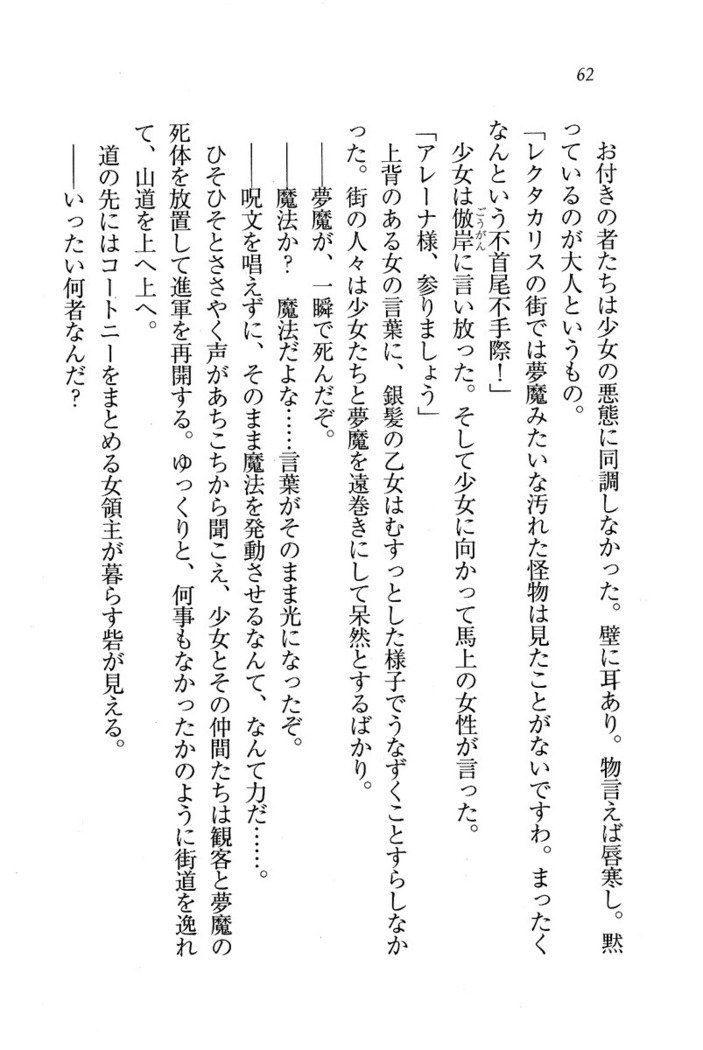 62
お付きの者たちは少女の悪態に同調しなかった。壁に耳あり。物言えば唇寒し。黙
っているのが大人というもの。
「レクタカリスの街では夢魔みたいな汚れた怪物は見たことがないですわ。まったく
なんという不首尾不手際！」
少女は傲岸に言い放った。そして少女に向かって馬上の女性が言った。
ごうがん
「アレーナ様、参りましょう」
上背のある女の言葉に、銀髪の乙女はむすっとした様子でうなずくことすらしなか
った。街の人々は少女たちと夢魔を遠巻きにして呆然とするばかり。
――夢魔が、一瞬で死んだぞ。
――魔法か？　魔法だよな……言葉がそのまま光になったぞ。
――呪文を唱えずに、そのまま魔法を発動させるなんて、なんて力だ……。
ひそひそとささやく声があちこちから聞こえ、少女とその仲間たちは観客と夢魔の
死体を放置して進軍を再開する。ゆっくりと、何事もなかったかのように街道を逸れ
て、山道を上へ上へ。
道の先にはコートニーをまとめる女領主が暮らす砦が見える。
――いったい何者なんだ？